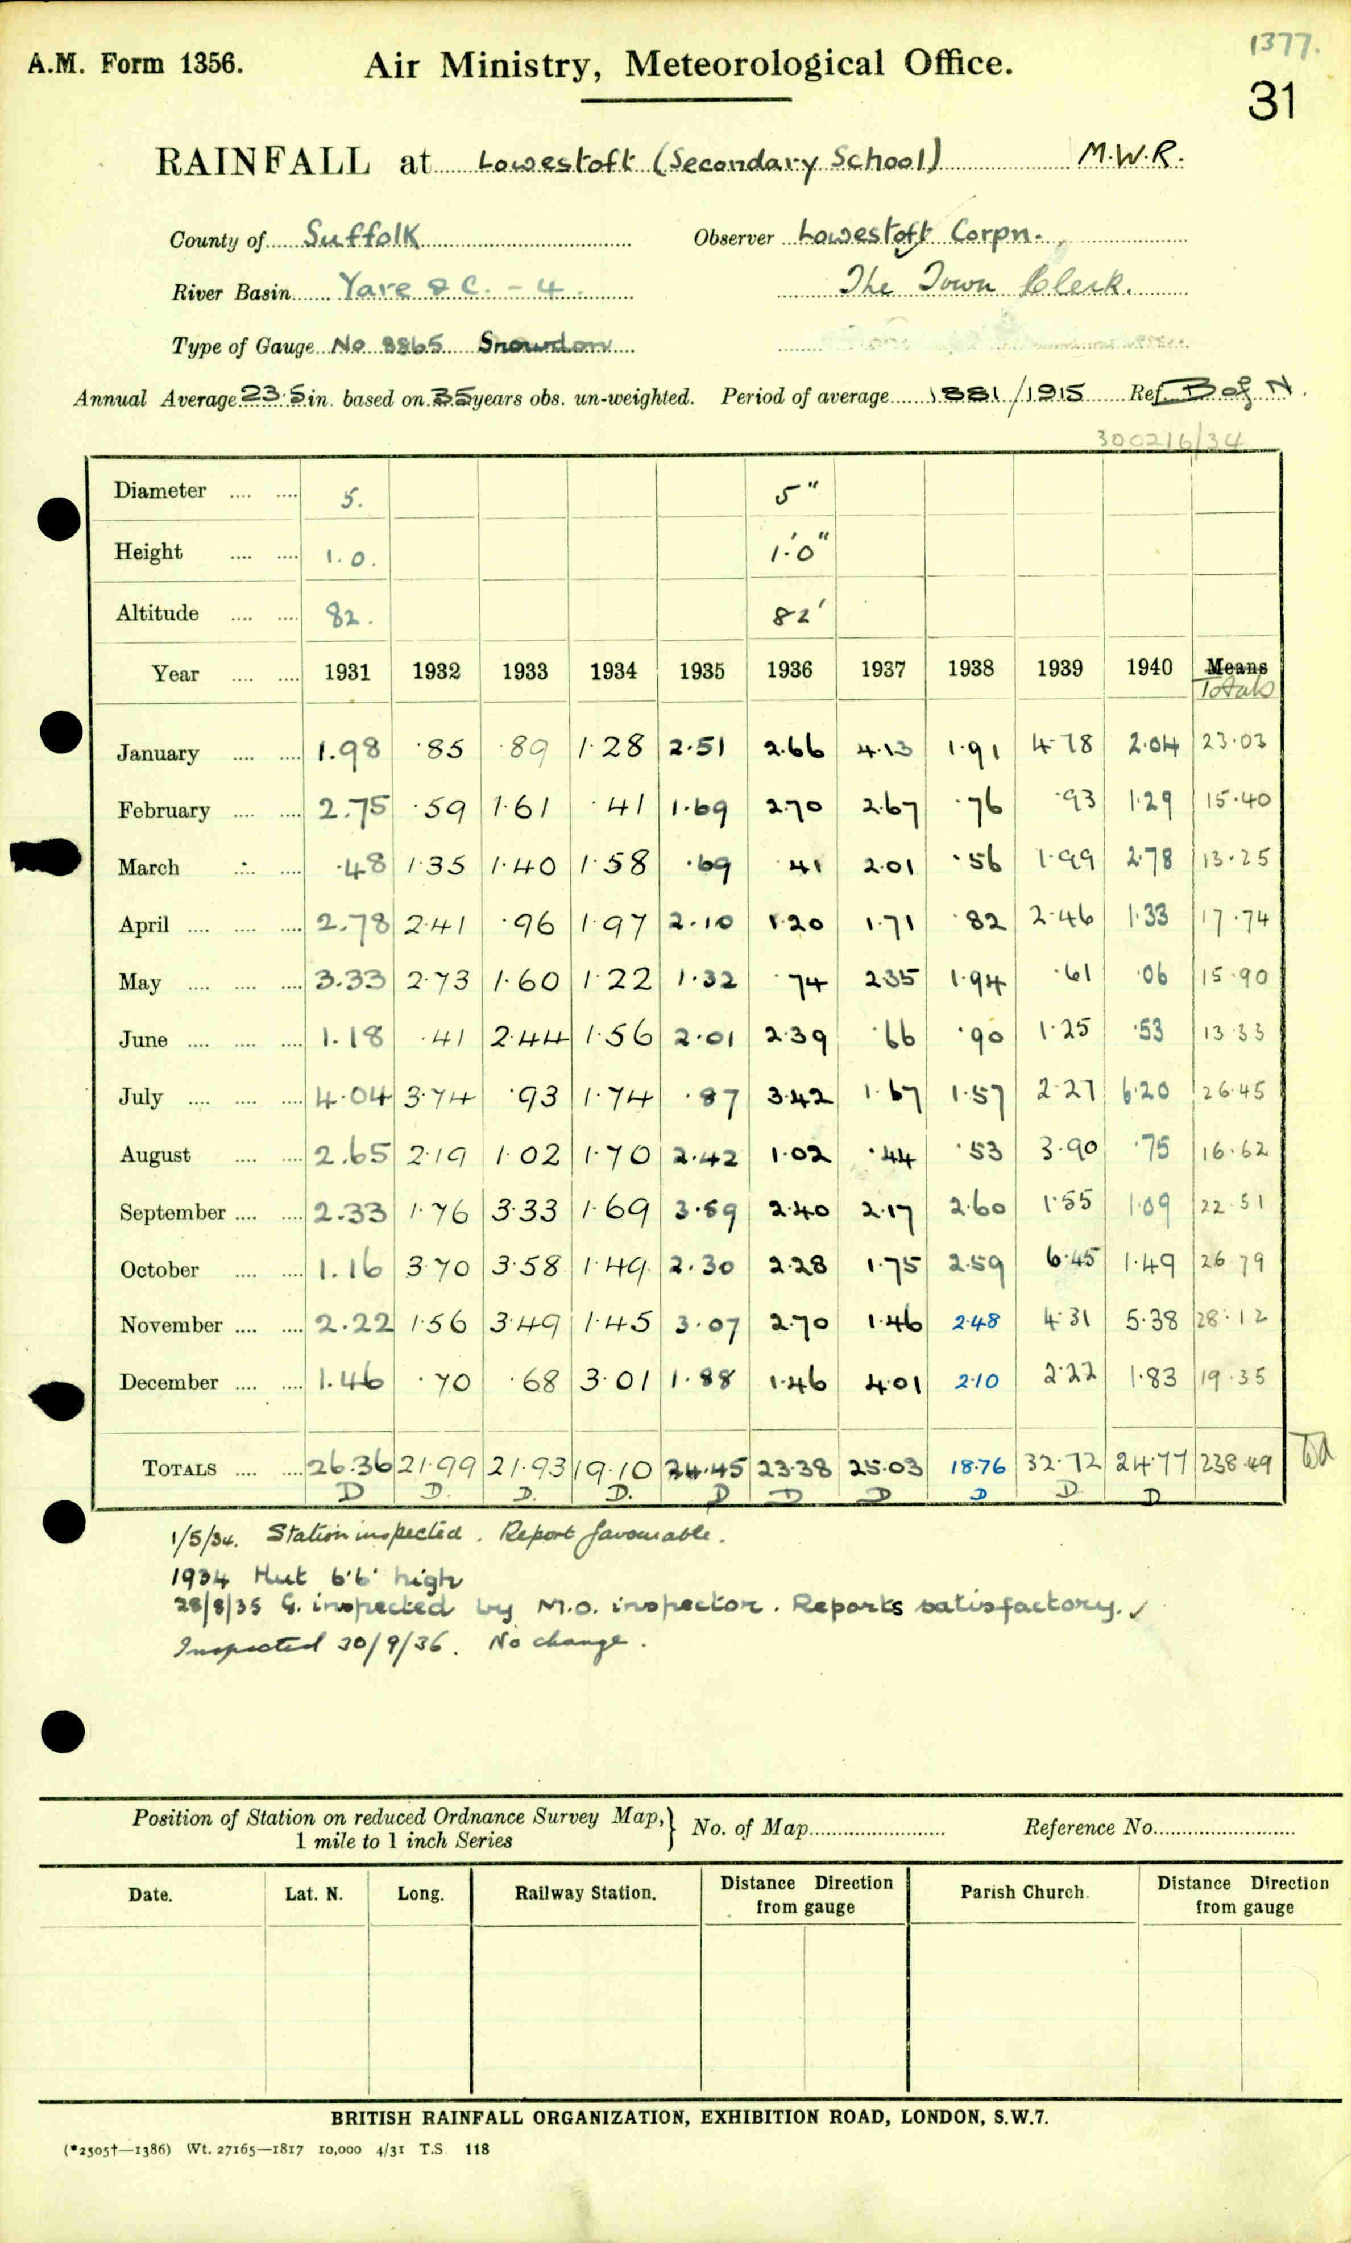 1377.
A.M. Form 1356. Air Ministry, Meteorological Office.
31
RAINFALL at Lowestoft (Secondary School) M.W.R.
County of Suffolk Observer Lowestoft Corpn.
River Basin Yare &c. - 4. The Town Clerk.
Type of Gauge No 8865 Snowdon
Annual Average 23.5 in. based on 35 years obs. un-weighted. Period of average 1881/1915 Ref. B of N.
300216/34
Diameter .... .... 5. 5"
Height .... .... 1.0. 1'.0"
Altitude .... .... 82. 82'
Year .... .... 1931 1932 1933 1934 1935 1936 1937 1938 1939 1940 Means
Totals
January .... .... 1.98 .85 .89 1.28 2.51 2.66 4.13 1.91 4.78 2.04 23.03
February .... .... 2.75 .59 1.61 .41 1.69 2.70 2.67 .76 .93 1.29 15.40
March .... .... .48 1.35 1.40 1.58 .69 .41 2.01 .56 1.99 2.78 13.25
April .... .... .... 2.78 2.41 .96 1.97 2.10 1.20 1.71 .82 2.46 1.33 17.74
May .... .... .... 3.33 2.73 1.60 1.22 1.32 .74 2.35 1.94 .61 .06 15.90
June .... .... .... 1.18 .41 2.44 1.56 2.01 2.39 .66 .90 1.25 .53 13.33
July .... .... .... 4.04 3.74 .93 1.74 .87 3.42 1.67 1.57 2.27 6.20 26.45
August .... .... 2.65 2.19 1.02 1.70 2.42 1.02 .44 .53 3.90 .75 16.62
September .... .... 2.33 1.76 3.33 1.69 3.59 2.40 2.17 2.60 1.55 1.09 22.51
October .... .... 1.16 3.70 3.58 1.49 2.30 2.28 1.75 2.59 6.45 1.49 26.79
November .... .... 2.22 1.56 3.49 1.45 3.07 2.70 1.46 2.48 4.31 5.38 28.12
December .... .... 1.46 .70 .68 3.01 1.88 1.46 4.01 2.10 2.22 1.83 19.35
TOTALS .... .... 26.36 21.99 21.93 19.10 24.45 23.38 25.03 18.76 32.72 24.77 238.49
D D. D. D. D D D D D D
1/5/34. Station inspected. Report favourable.
1934 Hut 6'6" high
28/8/35 G. inspected by M.O. inspector. Reports satisfactory. ✓
Inspected 30/9/36. No change.
Position of Station on reduced Ordnance Survey Map, } No. of Map Reference No.
1 mile to 1 inch Series
Date. Lat. N. Long. Railway Station. Distance Direction from gauge Parish Church. Distance Direction from gauge
BRITISH RAINFALL ORGANIZATION, EXHIBITION ROAD, LONDON, S.W.7.
(*2505†—1386) Wt. 27165—1817 10,000 4/31 T.S 118